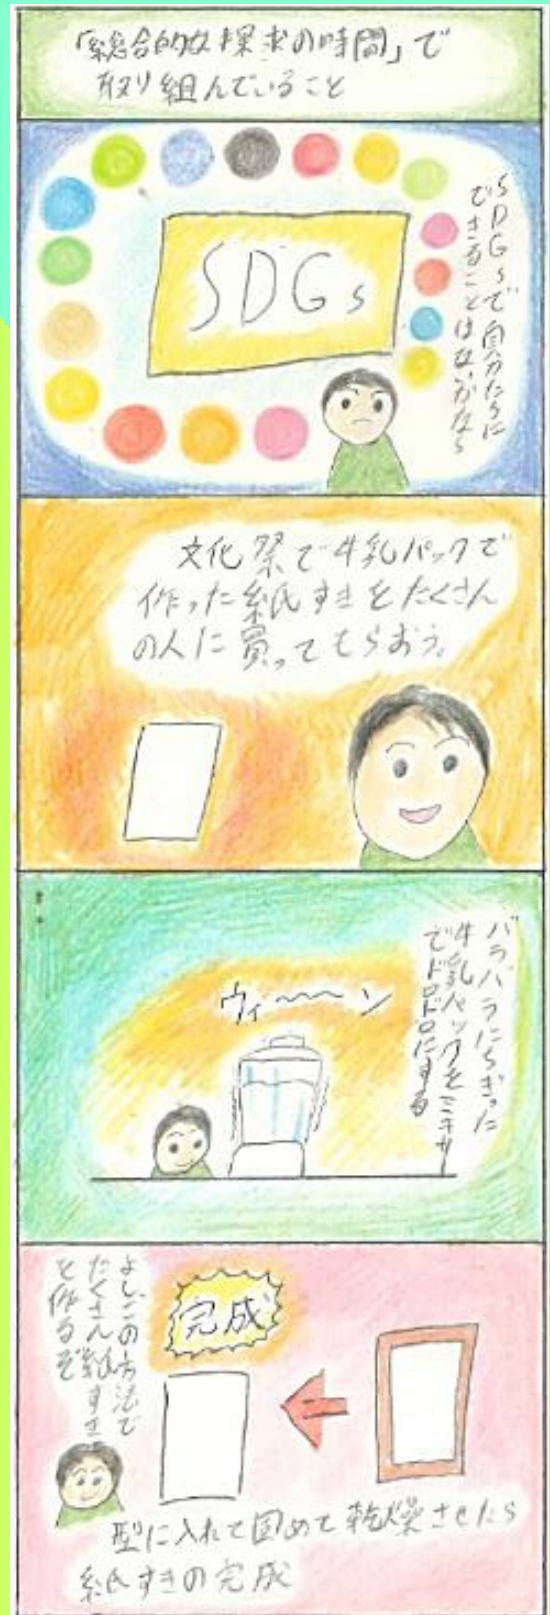 「総合的な探求の時間」で
取り組んでいること
SDGsで自分たちに
できることはなにかなぁ
SDGs
文化祭で牛乳パックで
作った紙すきをたくさん
の人に買ってもらおう。
バラバラにちぎった
牛乳パックをミキサー
でドロドロにする
ウィ〜〜〜ン
よし、この方法で
たくさん紙すき
を作るぞ
完成
型に入れて固めて乾燥させたら
紙すきの完成